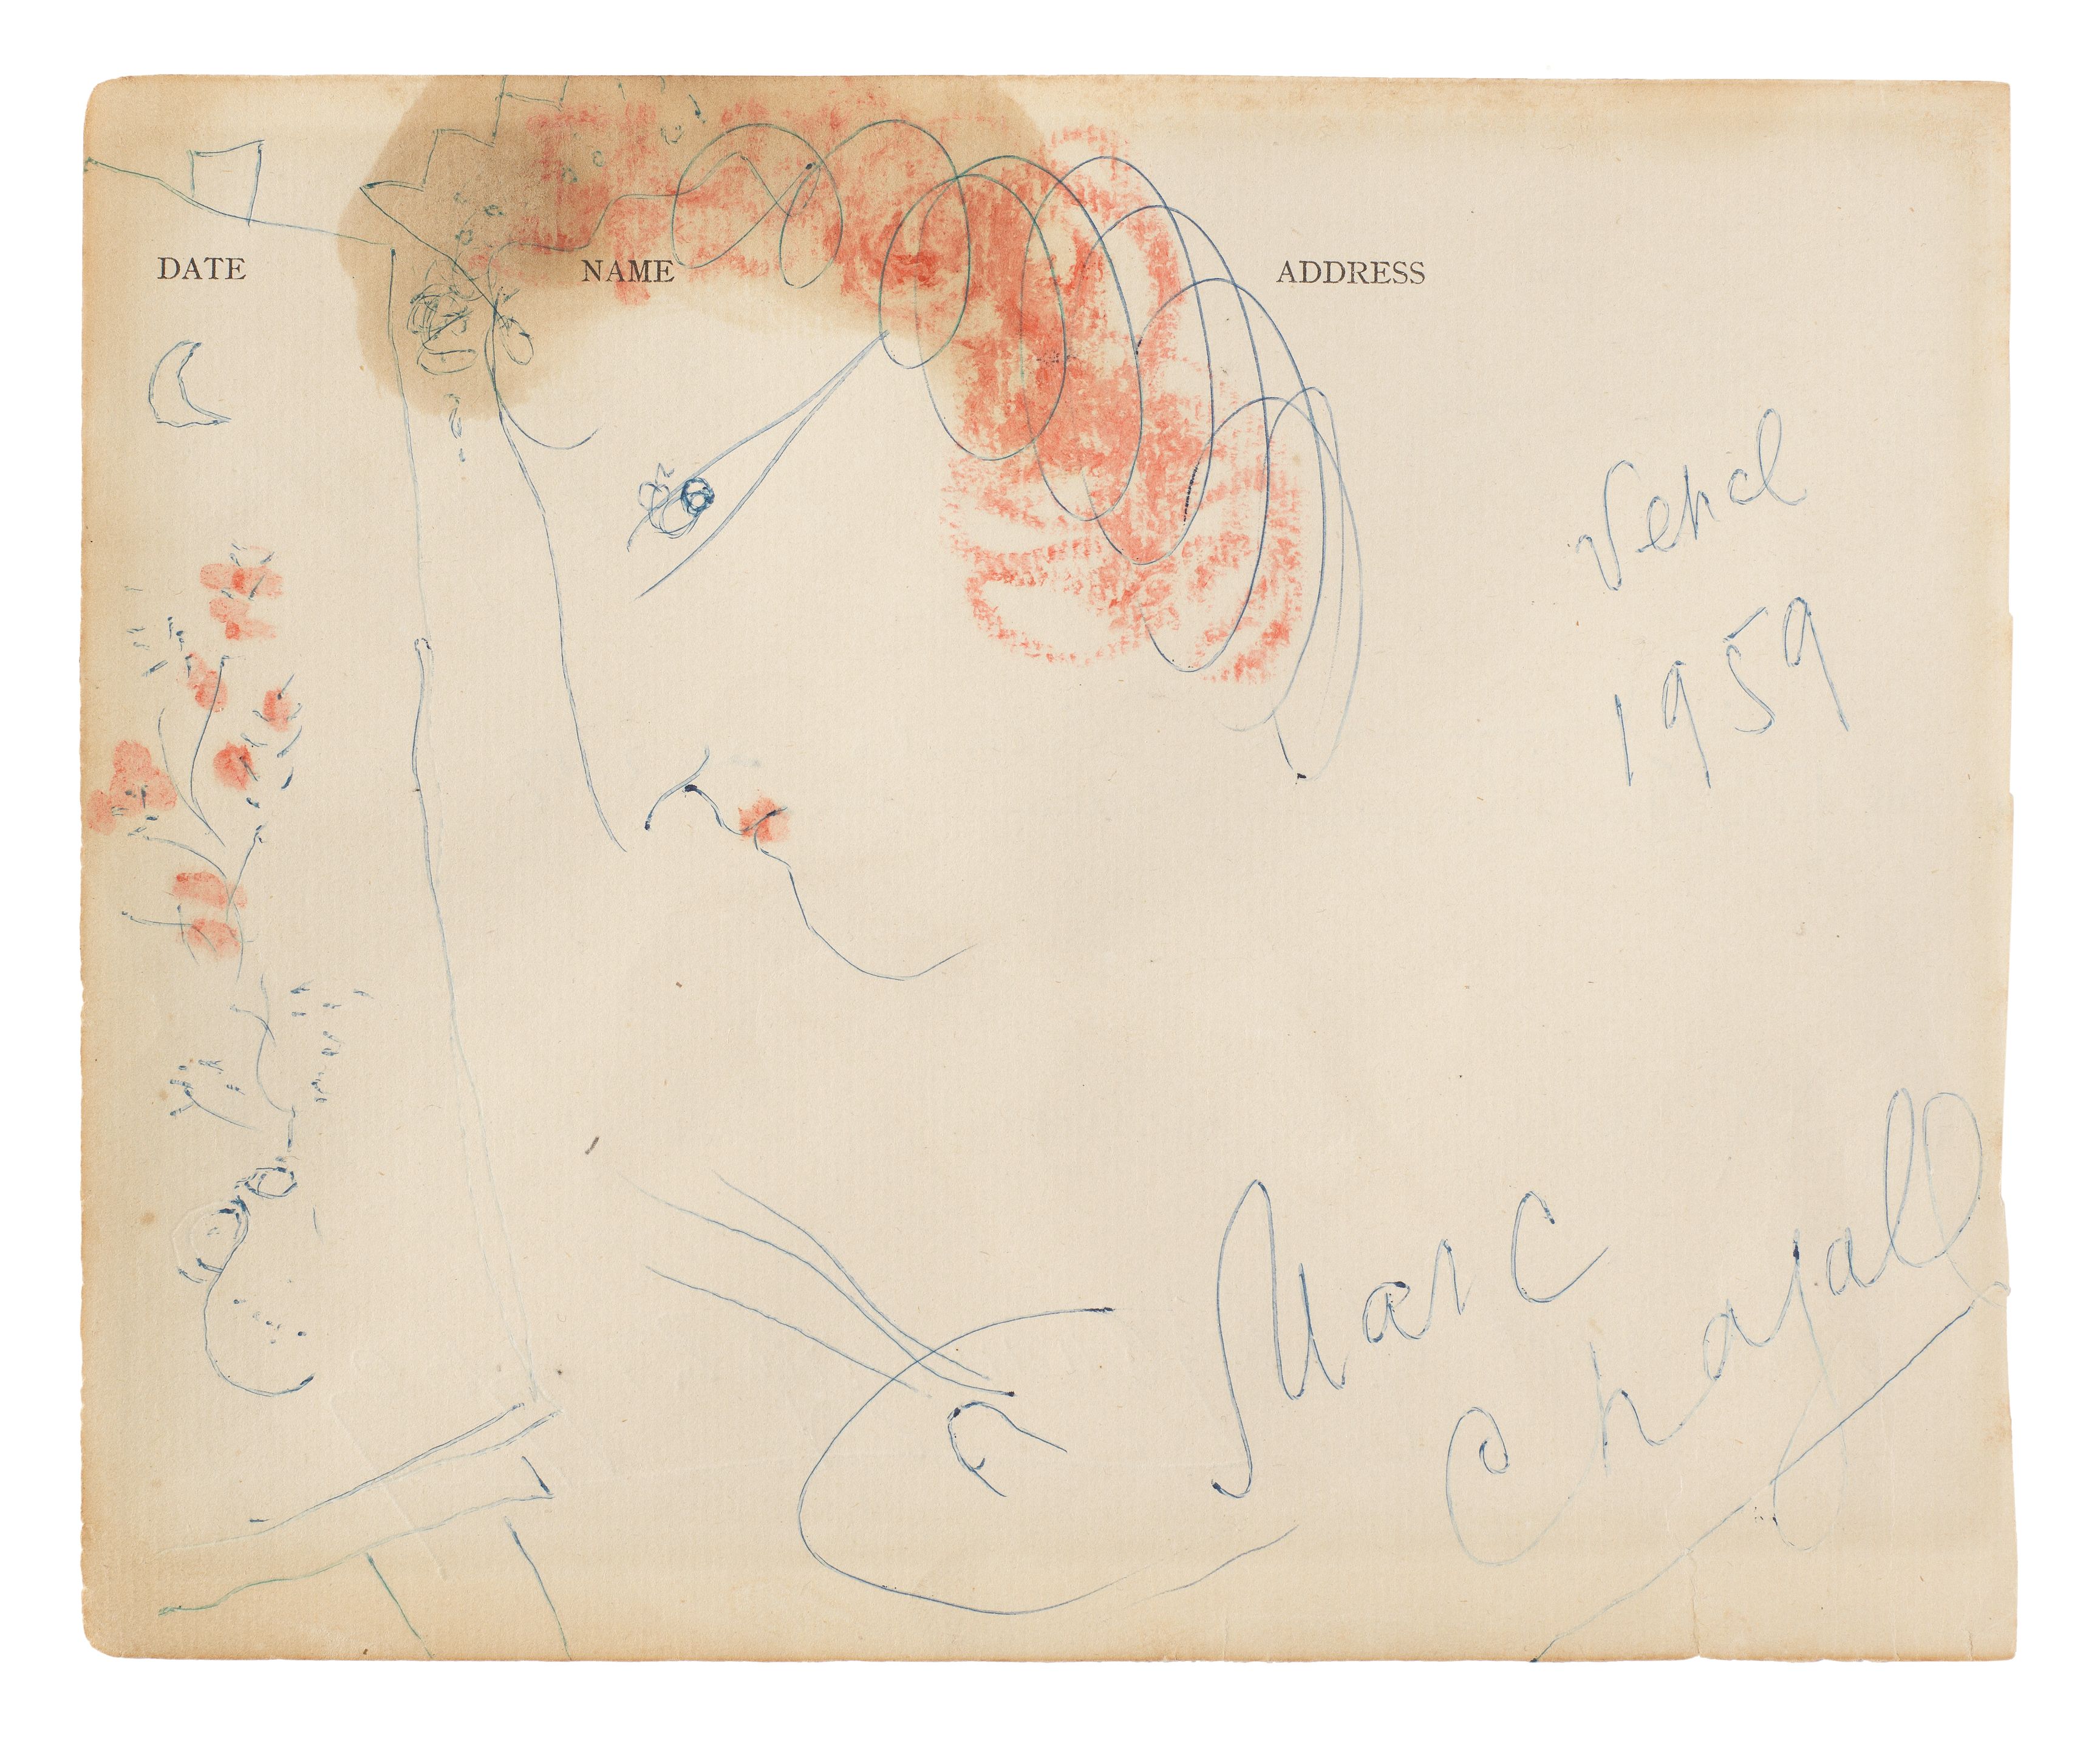 DATE NAME ADDRESS
Vence
1959
Marc
Chagall